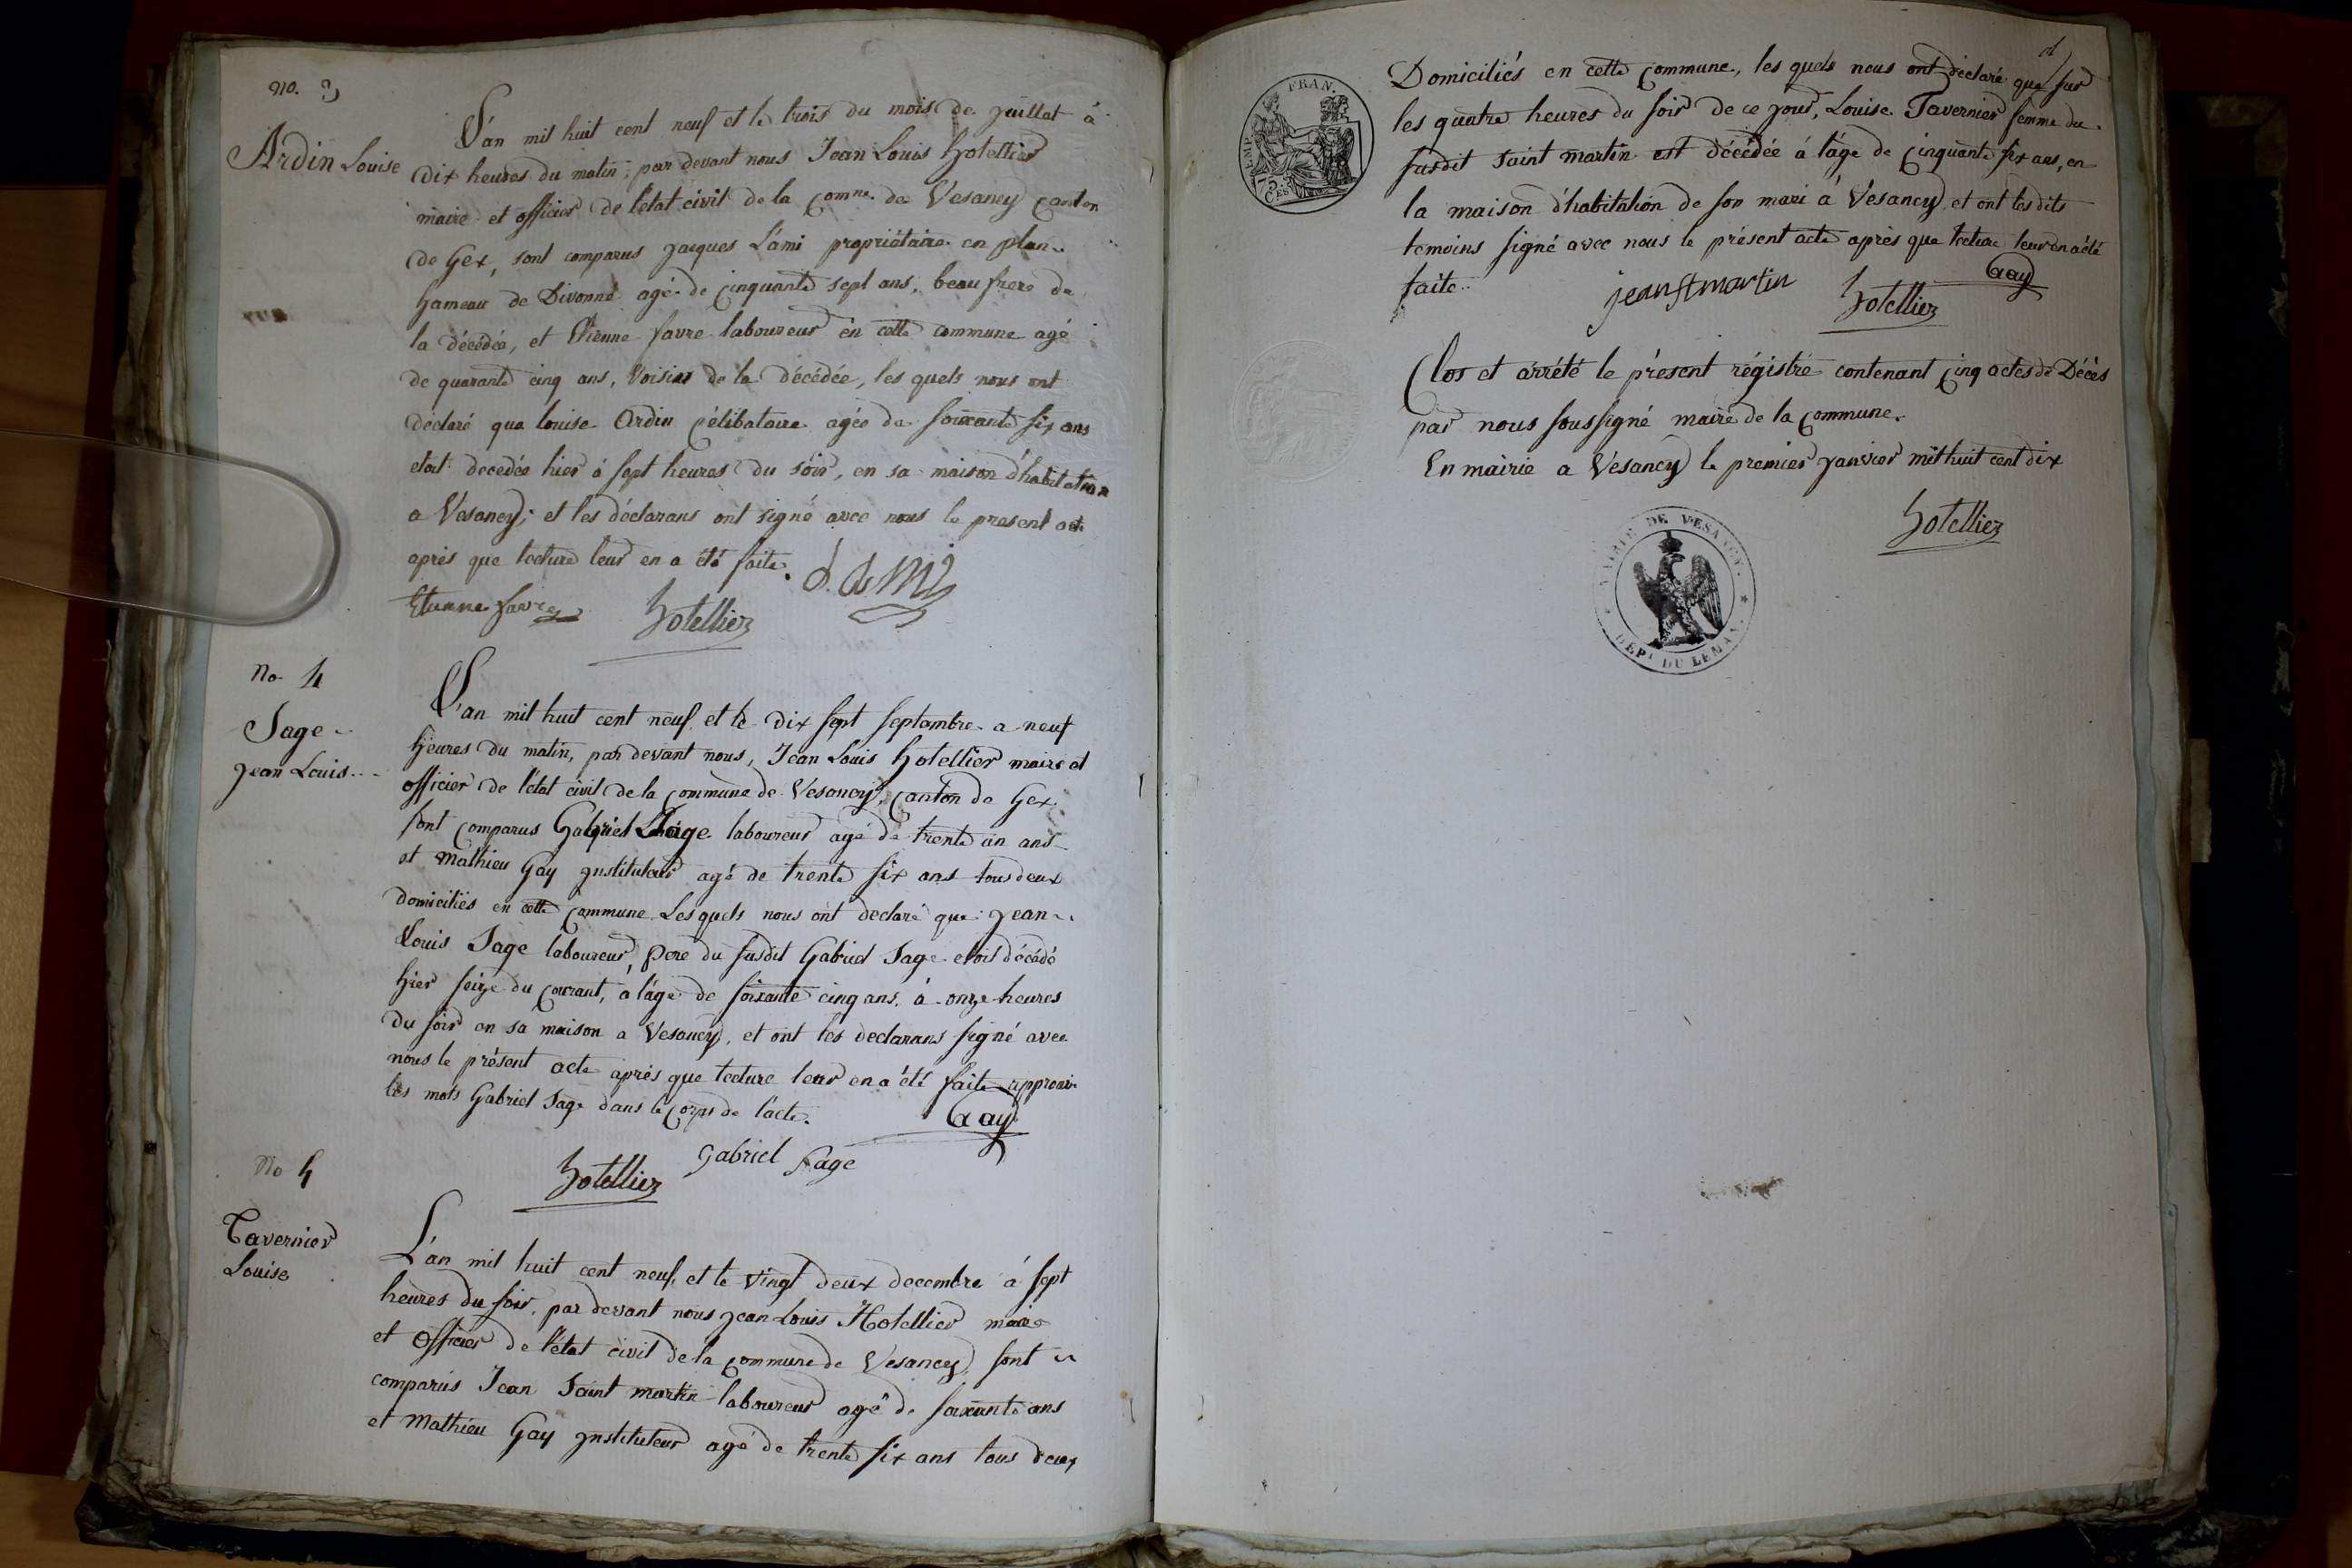 no. 3
Ardin Louise
L'an mil huit cent neuf et le trois du mois de juillet à
dix heures du matin; par devant nous Jean Louis Hotellier
maire et officier de l'etat civil de la comne. de Vesancy canton
de Gex, sont comparus Jacques L'ami propriétaire en plan
hameau de Divonne agé de cinquante sept ans, beau frere de
la décédée, et Etienne favre laboureur en cette commune agé
de quarante cinq ans, voisins de la décédée, les quels nous ont
déclaré que louise Ardin célibataire agée de soixante six ans
etoit decedée hier à sept heures du soir, en sa maison d'habitation
a Vesancy; et les déclarans ont signé avec nous le present acte
après que lecture leur en a été faite.
Etienne favre
hotellier
no 4
Sage
Jean Louis
L'an mil huit cent neuf et le dix sept septembre a neuf
heures du matin, par devant nous, Jean Louis hotellier maire et
officier de l'état civil de la commune de Vesancy, canton de Gex
sont comparus Gabriel Sage laboureur agé de trente un ans
et mathieu Gay instituteur agé de trente six ans tous deux
domiciliés en cette commune Lesquels nous ont declaré que jean
Louis Sage laboureur, pere du susdit Gabriel Sage etoit décédé
hier seize du courant, à l'âge de soixante cinq ans, à onze heures
du soir en sa maison a Vesancy, et ont les declarans signé avec
nous le présent acte après que lecture leur en a été faite approuvé
les mots Gabriel Sage dans le corps de l'acte.
Gay
Gabriel Sage
hotellier
No 5
Tavernier
Louise
L'an mil huit cent neuf, et le vingt deux decembre à sept
heures du soir, par devant nous jean Louis Hotellier maire
et Officier de l'état civil de la commune de Vesancy, sont
comparus Jean Saint martin laboureur agé de soixante ans
et Mathieu Gay instituteur agé de trente six ans tous deux
FRAN.
75 CES
Domiciliés en cette commune, les quels nous ont déclaré que sur
les quatre heures du soir de ce jour, Louise Tavernier femme du
susdit saint martin est décédée à l'âge de cinquante six ans, en
la maison d'habitation de son mari à Vesancy et ont lesdits
temoins signé avec nous le présent acte après que lecture leur en a été
faite
jean st martin
hotellier
Gay
Clos et arrêté le présent régistre contenant cinq actes de Décès
par nous soussigné maire de la commune.
En mairie a Vesancy le premier janvier mil huit cent dix
hotellier
MAIRIE DE VESANCY.
DEPt. DU LEMAN.